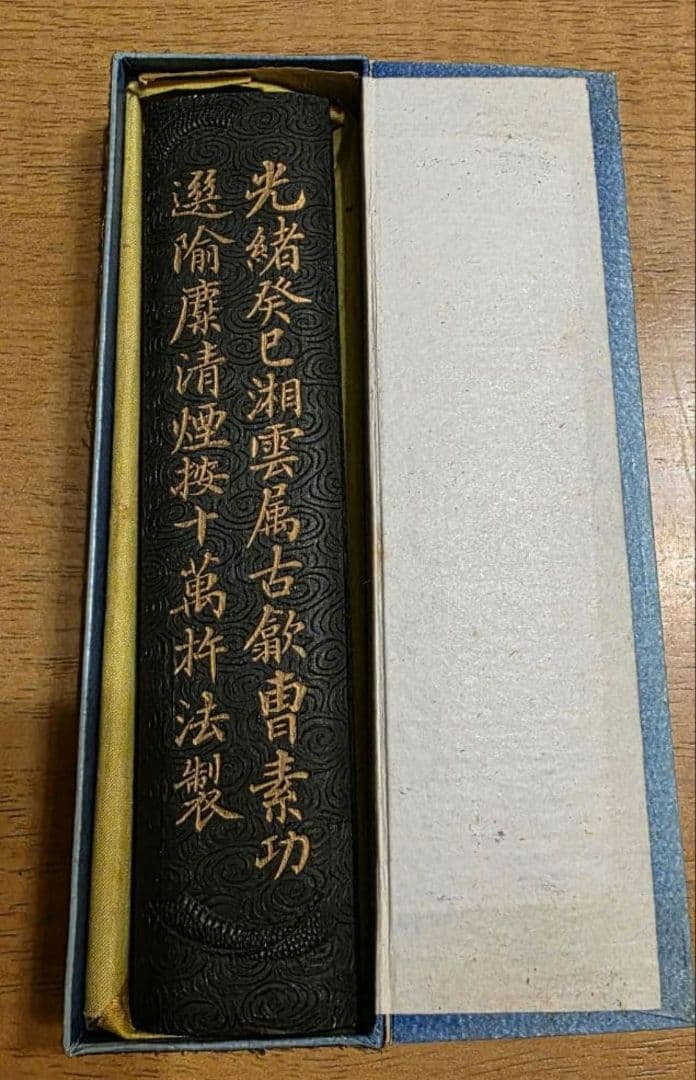 光緒癸巳湘雲属古歙曹素功
選隃麋清煙按十萬杵法製